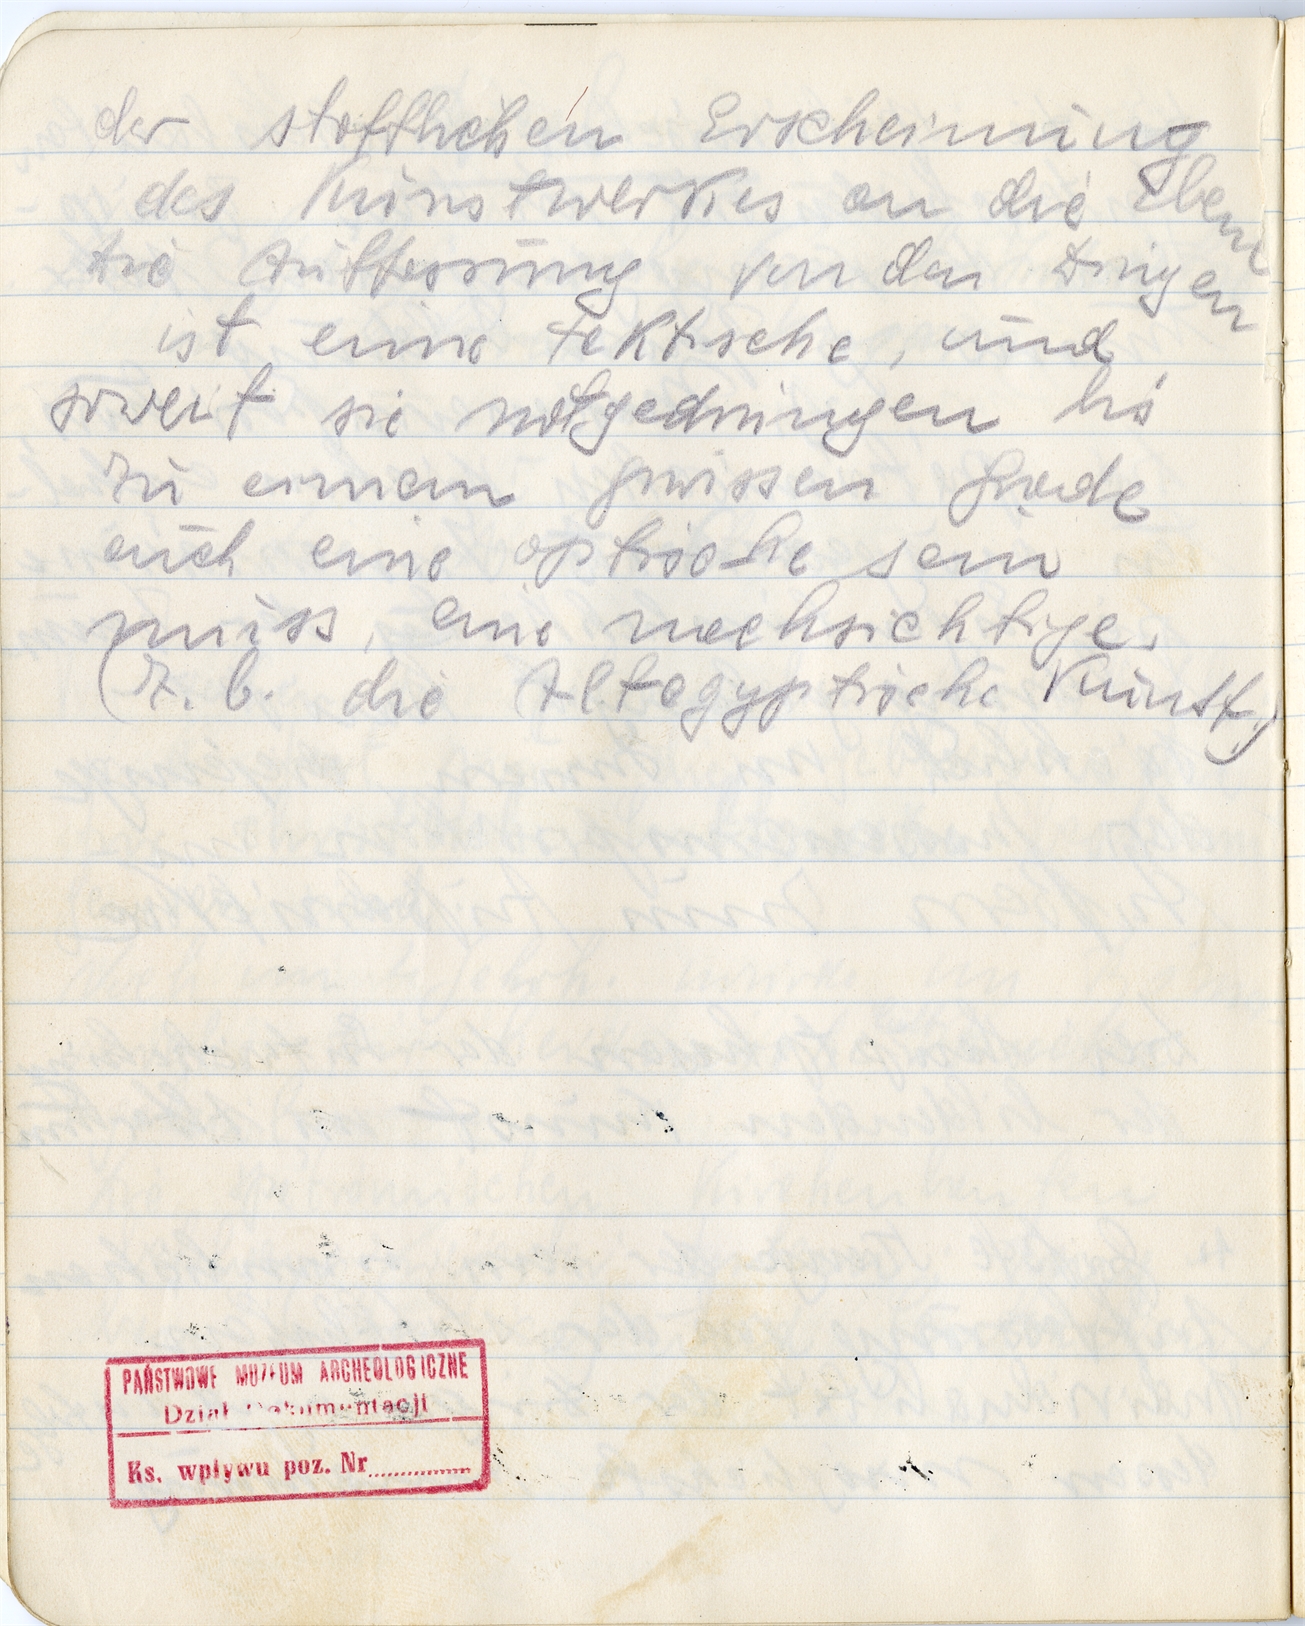 der stofflichen Erscheinung
des Kunstwerkes an die Ebene
Die Auffassung von den Dingen
ist eine taktische, und
soweit sie notgedrungen bis
zu einem gewissen Grade
auch eine optische sein
muss, eine nachsichtige.
(z. b. die Altegyptische Kunst.)
PAŃSTWOWE MUZEUM ARCHEOLOGICZNE
Dział Dokumentacji
Ks. wpływu poz. Nr